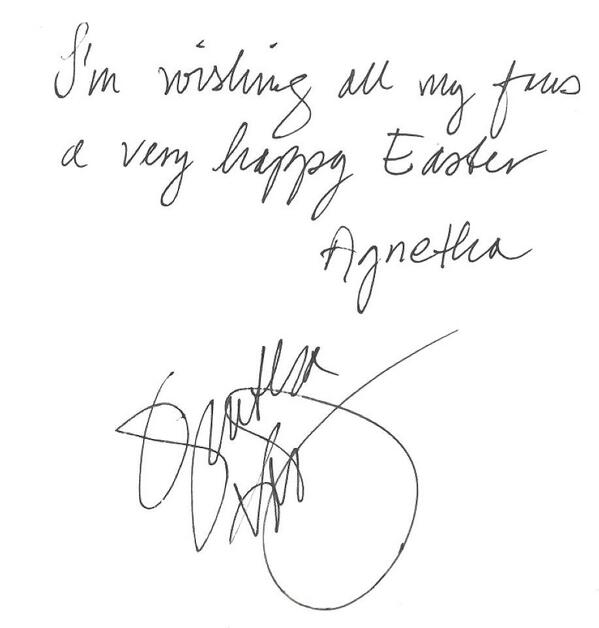 I'm wishing all my fans
a very happy Easter
Agnetha
Agnetha